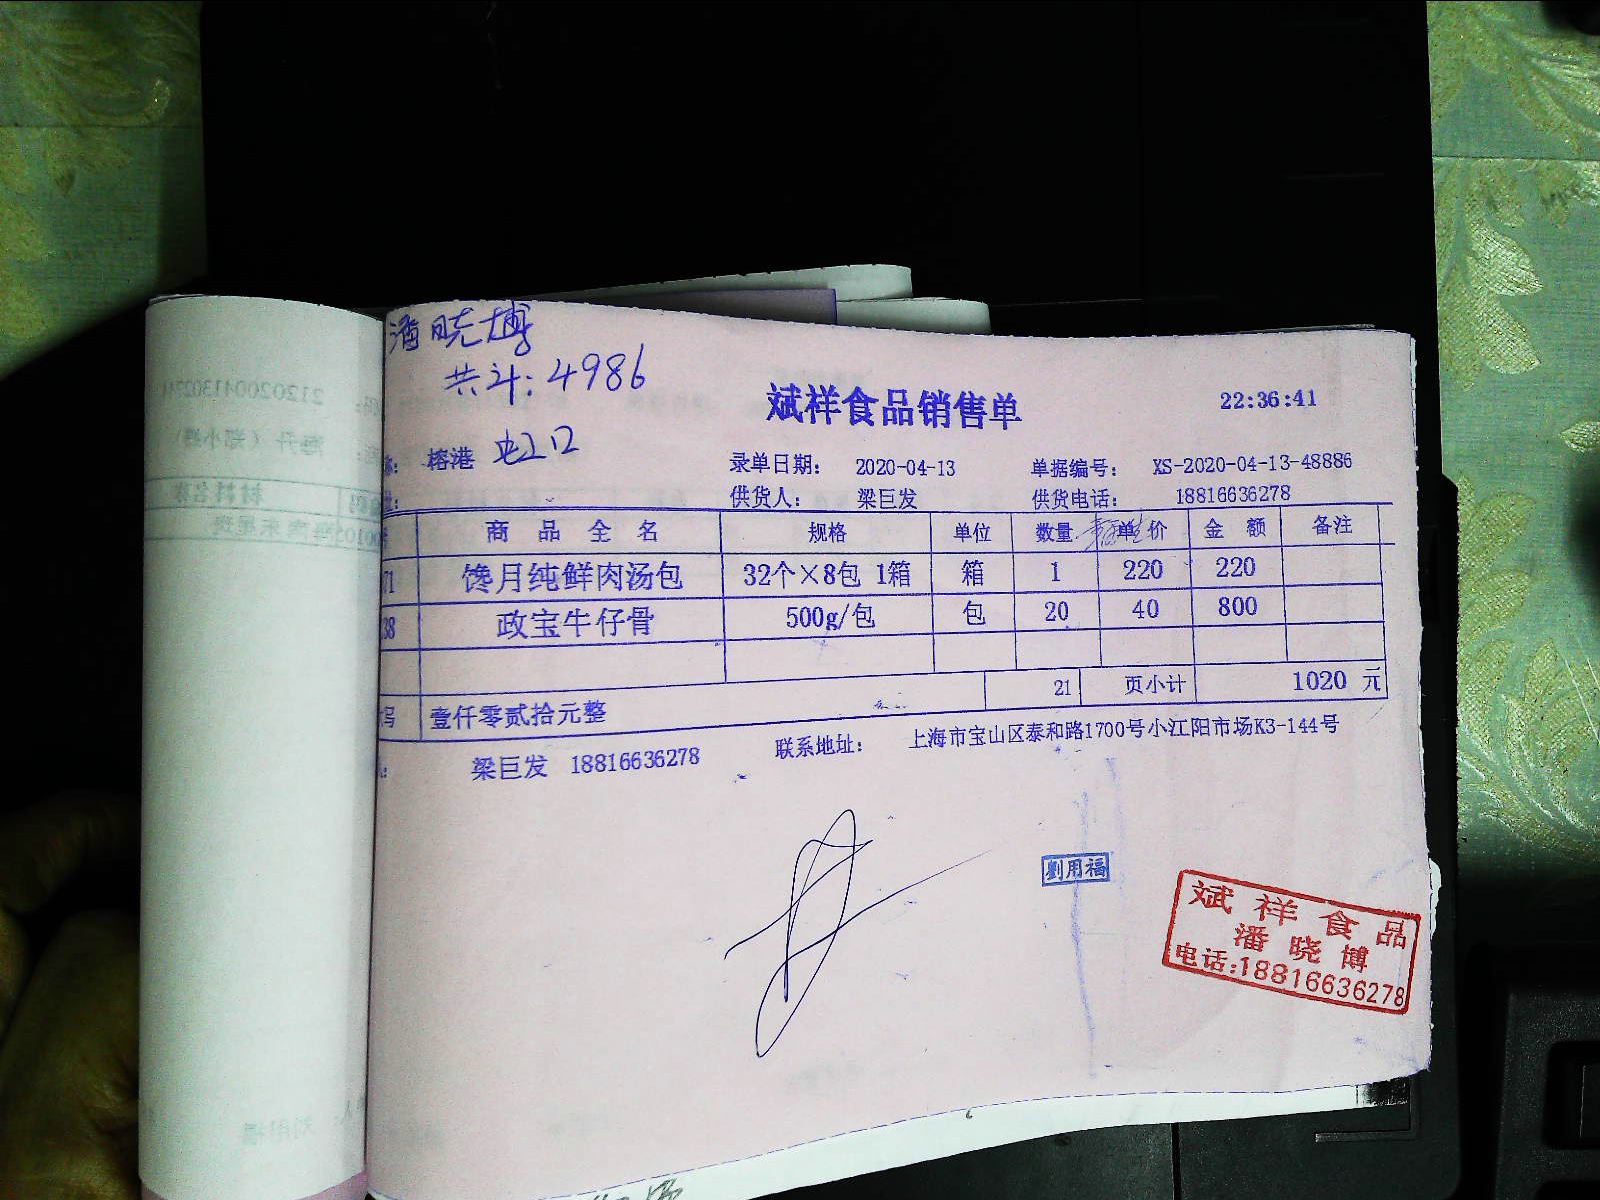 潘晓博
共计:4986
斌祥食品销售单
22:36:41
称: 榕港 虹口
录单日期: 2020-04-13 单据编号: XS-2020-04-13-48886
址: 供货人: 梁巨发 供货电话: 18816636278
商品全名 规格 单位 数量 单价 金额 备注
71 馋月纯鲜肉汤包 32个×8包 1箱 箱 1 220 220
38 政宝牛仔骨 500g/包 包 20 40 800
21 页小计 1020 元
大写 壹仟零贰拾元整
梁巨发 18816636278 联系地址: 上海市宝山区泰和路1700号小江阳市场K3-144号
劉用福
斌祥食品
潘晓博
电话:18816636278